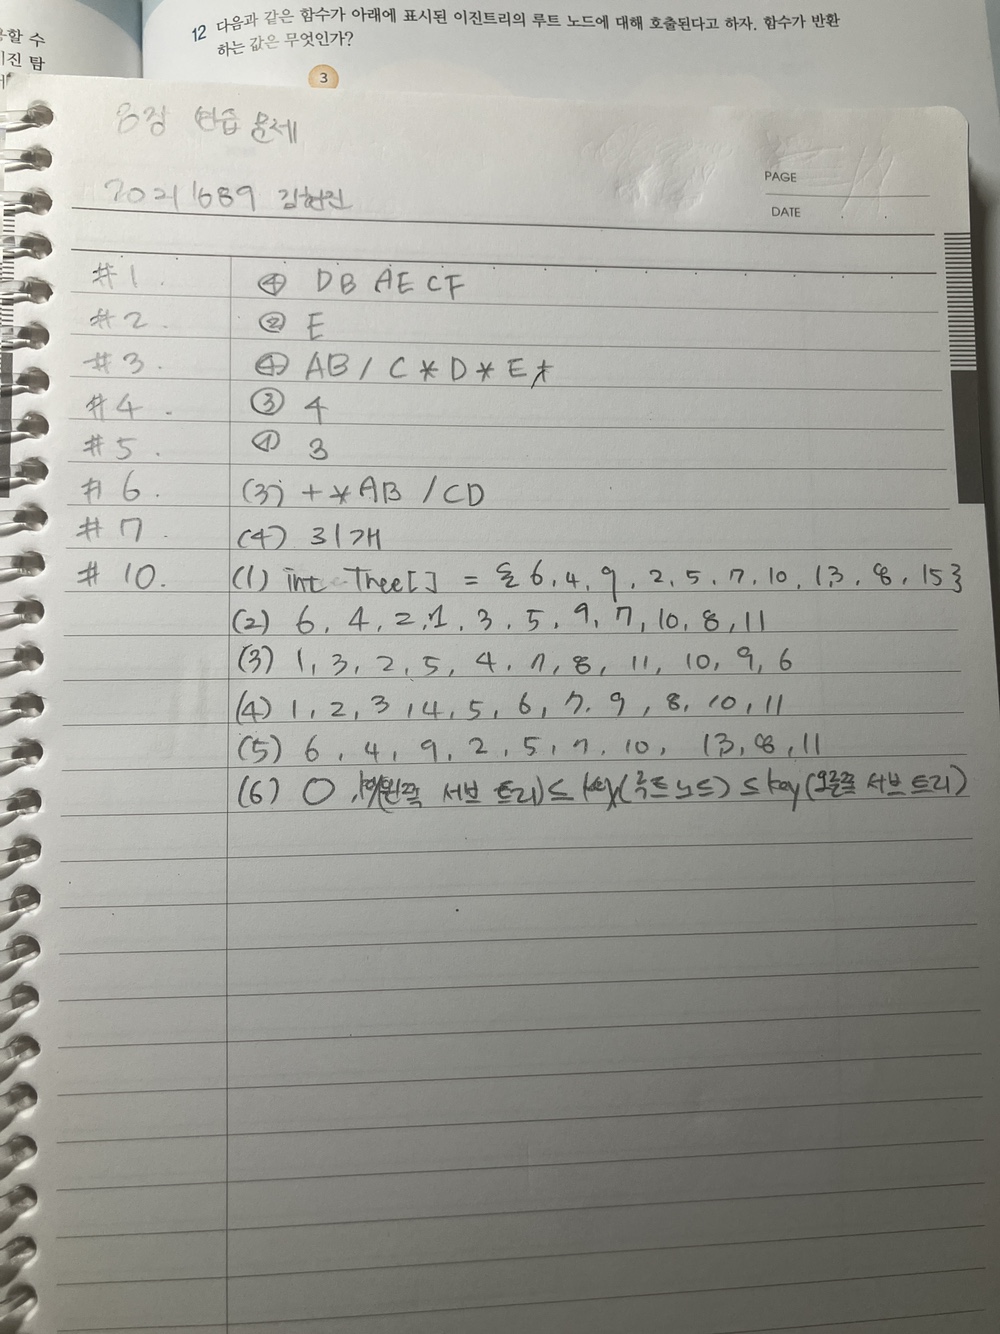 할 수
진 탐
12 다음과 같은 함수가 아래에 표시된 이진트리의 루트 노드에 대해 호출된다고 하자. 함수가 반환
하는 값은 무엇인가?
3
8장 연습 문제
20211689 김현진
PAGE
DATE
#1. ④ DBAECF
#2. ② E
#3. ④ AB/C*D*E+
#4. ③ 4
#5. ① 3
#6. (3) +*AB/CD
#7 (4) 31개
#10. (1) int Tree[] = {6,4,9,2,5,7,10,13,8,15}
(2) 6,4,2,1,3,5,9,7,10,8,11
(3) 1,3,2,5,4,7,8,11,10,9,6
(4) 1,2,3,4,5,6,7,9,8,10,11
(5) 6,4,9,2,5,7,10, 13,8,11
(6) O, key(왼쪽 서브 트리)≤ key(루트노드) ≤ key(오른쪽 서브 트리)